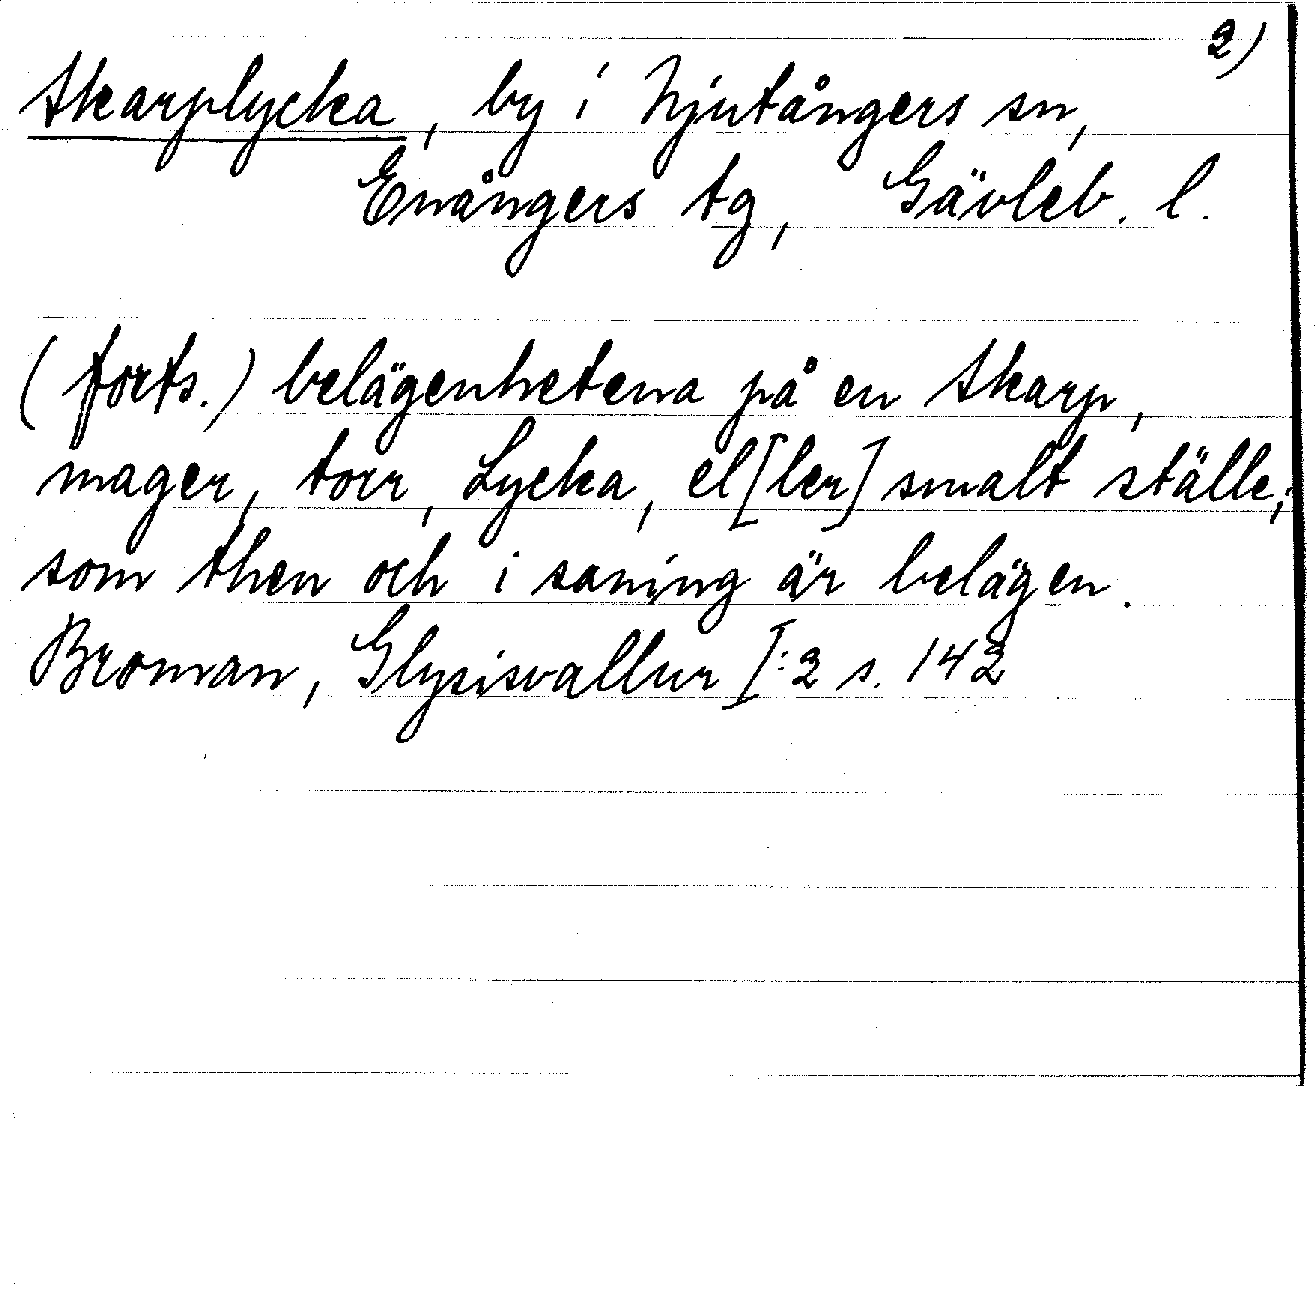 2)
Skarplycka, by i Njutångers sn,
Enångers tg, Gävleb. l.
(forts.) belägenhetena på en skarp,
mager, torr, Lycka, el[ler] smalt ställe,
som then och i saning är belägen.
Broman, Glysisvallur I:2 s. 142